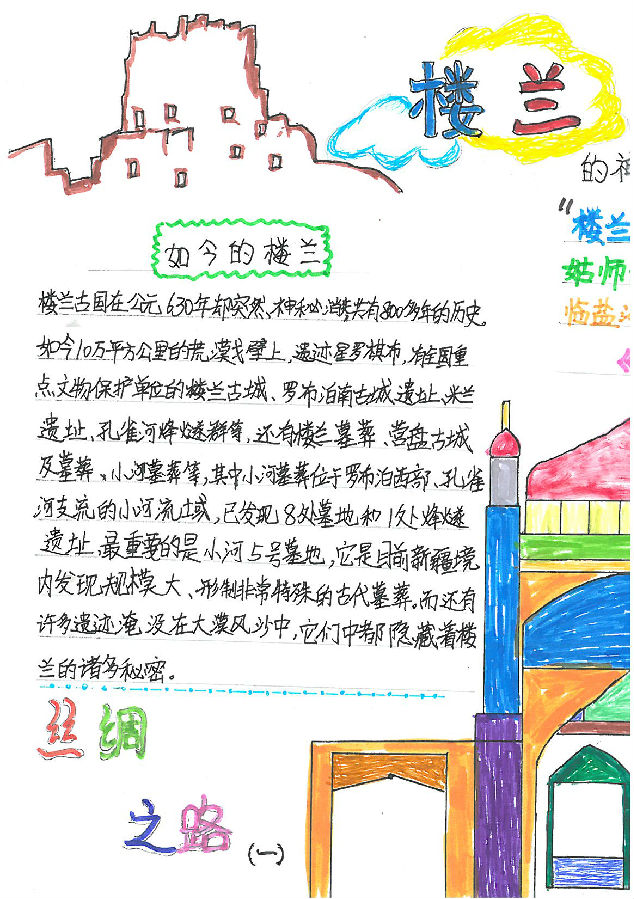 楼兰
的神
“楼兰
姑师
临盐
如今的楼兰
楼兰古国在公元630年却突然、神秘消失,共有800多年的历史。
如今10万平方公里的荒漠戈壁上,遗迹星罗棋布,有全国重
点文物保护单位的楼兰古城、罗布泊南古城遗址、米兰
遗址、孔雀河烽燧群等,还有楼兰墓葬、营盘古城
及墓葬、小河墓葬等,其中小河墓葬位于罗布泊西部、孔雀
河支流的小河流域,已发现8处墓地和1处烽燧
遗址、最重要的是小河5号墓地,它是目前新疆境
内发现规模大、形制非常特殊的古代墓葬。而还有
许多遗迹淹没在大漠风沙中,它们中都隐藏着楼
兰的诸多秘密。
丝绸
之路
(一)